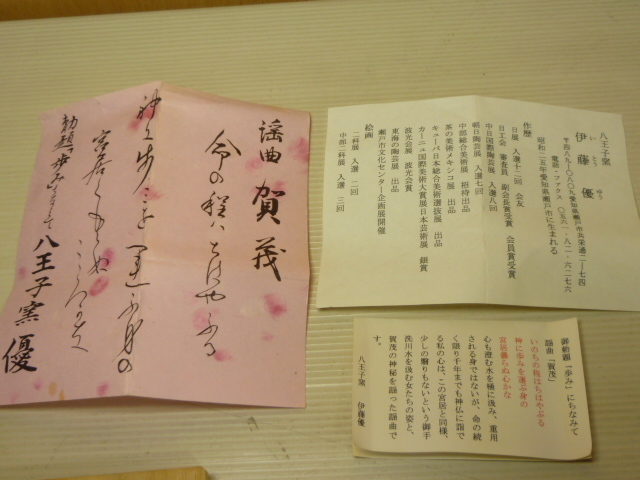 謡曲 賀茂
命の程ハちはやふる
神に歩ミを運ふ身の
宮居くもらぬ
こころかな
勅題 歩みによせて
八王子窯 優
八王子窯
いとう ゆう
伊藤 優
〒四八九-〇八〇九愛知県瀬戸市共栄通二-七四
電話・ファクス 〇五六一-八二-六二七六
昭和二五年愛知県瀬戸市に生まれる
作歴
日展 入選十二回 会友
日工会 審査員 副会長賞受賞 会員賞受賞
中日国際陶芸展 入選八回
朝日陶芸展 入選七回
中部総合美術展 招待出品
茶の美メキシコ展 出品
キューバ日本総合美術選抜展 出品
カーニュ国際美術大賞展日本芸術展 銀賞
波光会賞 波光会賞
東海の陶芸展 出品
瀬戸市文化センター企画展開催
絵画
二科展 入選 二回
中部二科展 入選 三回
御勅題「歩み」にちなみて
謡曲「賀茂」
いのちの程はちはやぶる
神に歩みを運ぶ身の
宮居曇らぬ心かな
心も澄む水を桶に汲み、重用
される身ではないが、命の続
く限り千年までも神仏に詣で
る私の心は、この宮居と同様、
少しの翳りもないという御手
洗川水を汲む女たちの姿と、
賀茂の神秘を謡った謡曲で
す。
八王子窯 伊藤優